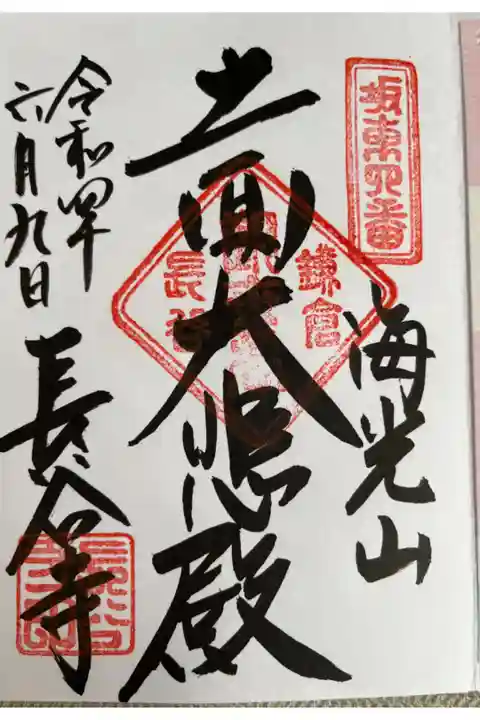 坂東四番
海光山
十一面大悲殿
鎌倉
長谷
令和四年
六月九日
長谷寺